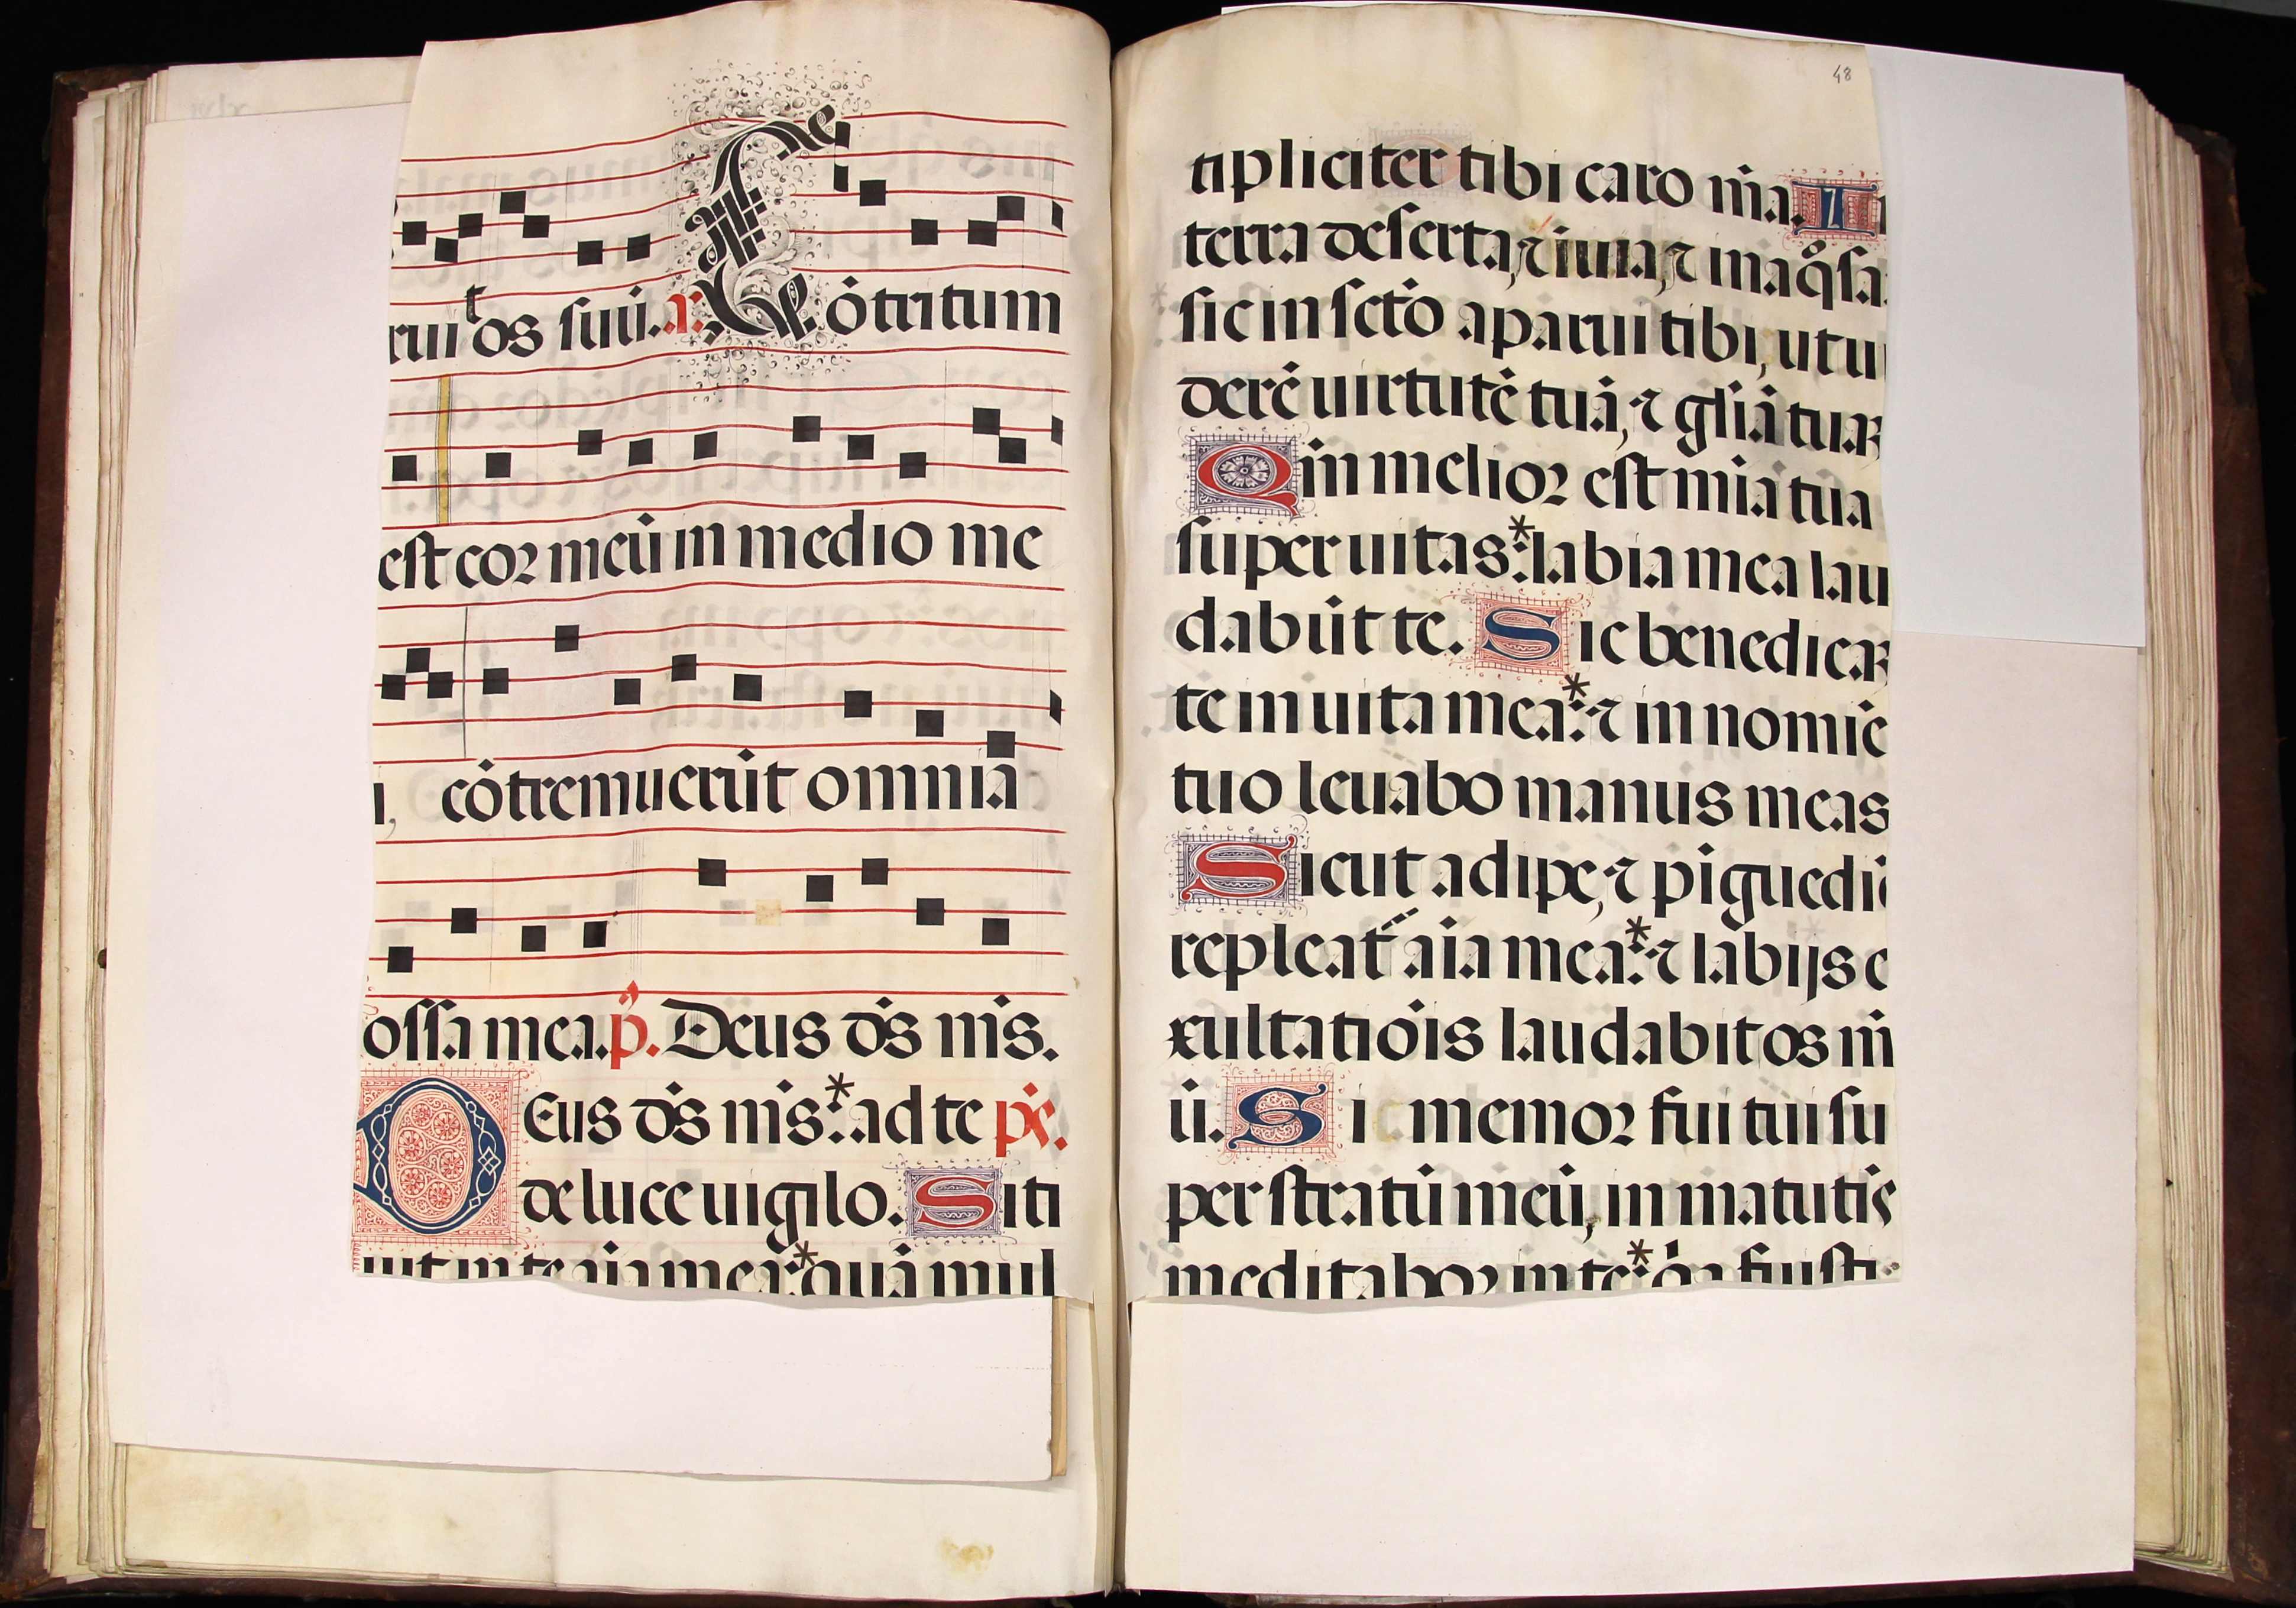 ruit os suū. a. Cōtritum
est cor meū in medio me
i, cōtremuerūt omnia
ossa mea. p̄. Deus ds̄ ms̄.
DEus ds̄ ms̄:* ad te ps̄.
de luce uigilo. Siti
uit in te aia mea:* quā mul
48
tipliciter tibi caro m̄a. I
terra deserta, ⁊ iuia, ⁊ inaq̊sa.
sic in sctō aparui tibi, ut ui
derē uirtutē tuā, ⁊ glīā tuaꝝ
Qm̄ melior est mīa tua
super uitas:* labia mea lau
dabūt te. Sic benedicaꝝ
te in uita mea:* ⁊ in nomīe
tuo leuabo manus meas
Sicut adipe, ⁊ piguedīe
repleat̄ aia mea:* ⁊ labijs e
xultatiōis laudabit os m̄
ū. Si memor fui tui su
per stratū meū, in matutīs
meditabor in te:* qa fuisti